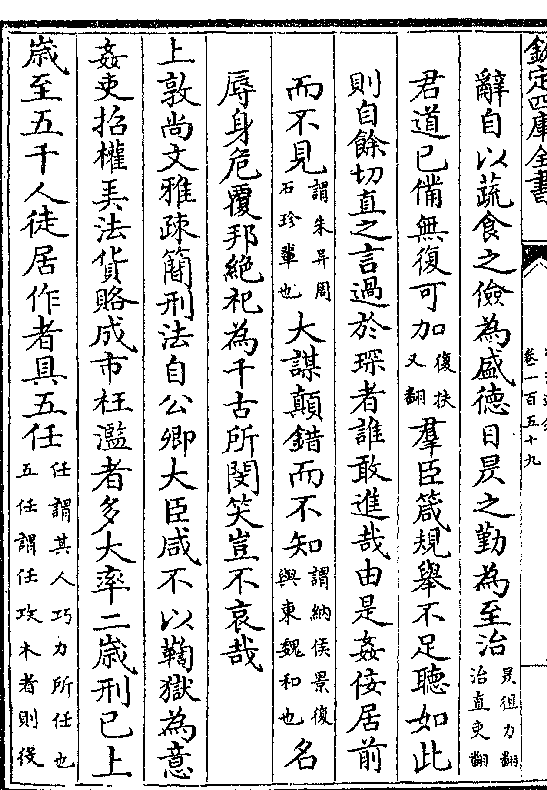 欽定四庫全書
卷一百五十九
辭自以蔬食之儉為盛德日昃之勤為至治昃徂力翻治直吏翻
君道已備無復可加復扶又翻羣臣箴規舉不足聽如此
則自餘切直之言過於琛者誰敢進哉由是姦佞居前
而不見謂朱昇周石珍輩也大謀顛錯而不知謂納侯景復與東魏和也名
辱身危覆邦絕祀為千古所閔笑豈不哀哉
上敦尚文雅疎簡刑法自公卿大臣咸不以鞠獄為意
姦吏招權弄法貨賂成市枉濫者多大率二歲刑已上
歲至五千人徒居作者具五任任謂其人巧力所任也五任謂任攻木者則役